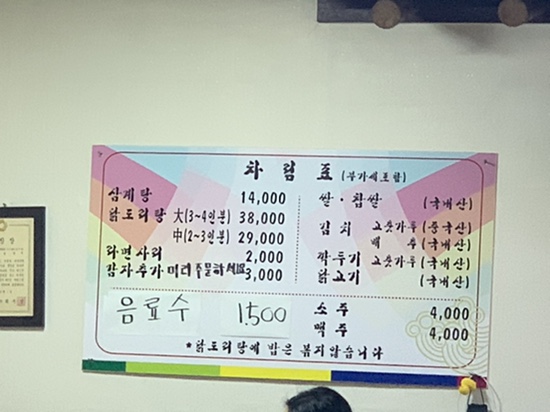 차림표 (부가세포함)
삼계탕 14,000
닭도리탕 大(3~4인분) 38,000
中(2~3인분) 29,000
라면사리 2,000
감자추가 미리 3,000
음료수 1.500
쌀·찹쌀 (국내산)
김치 고춧가루 (중국산)
배추 (국내산)
깍두기 고춧가루 (국내산)
닭고기 (국내산)
소주 4,000
맥주 4,000
*닭도리탕에 밥은 볶지않습니다